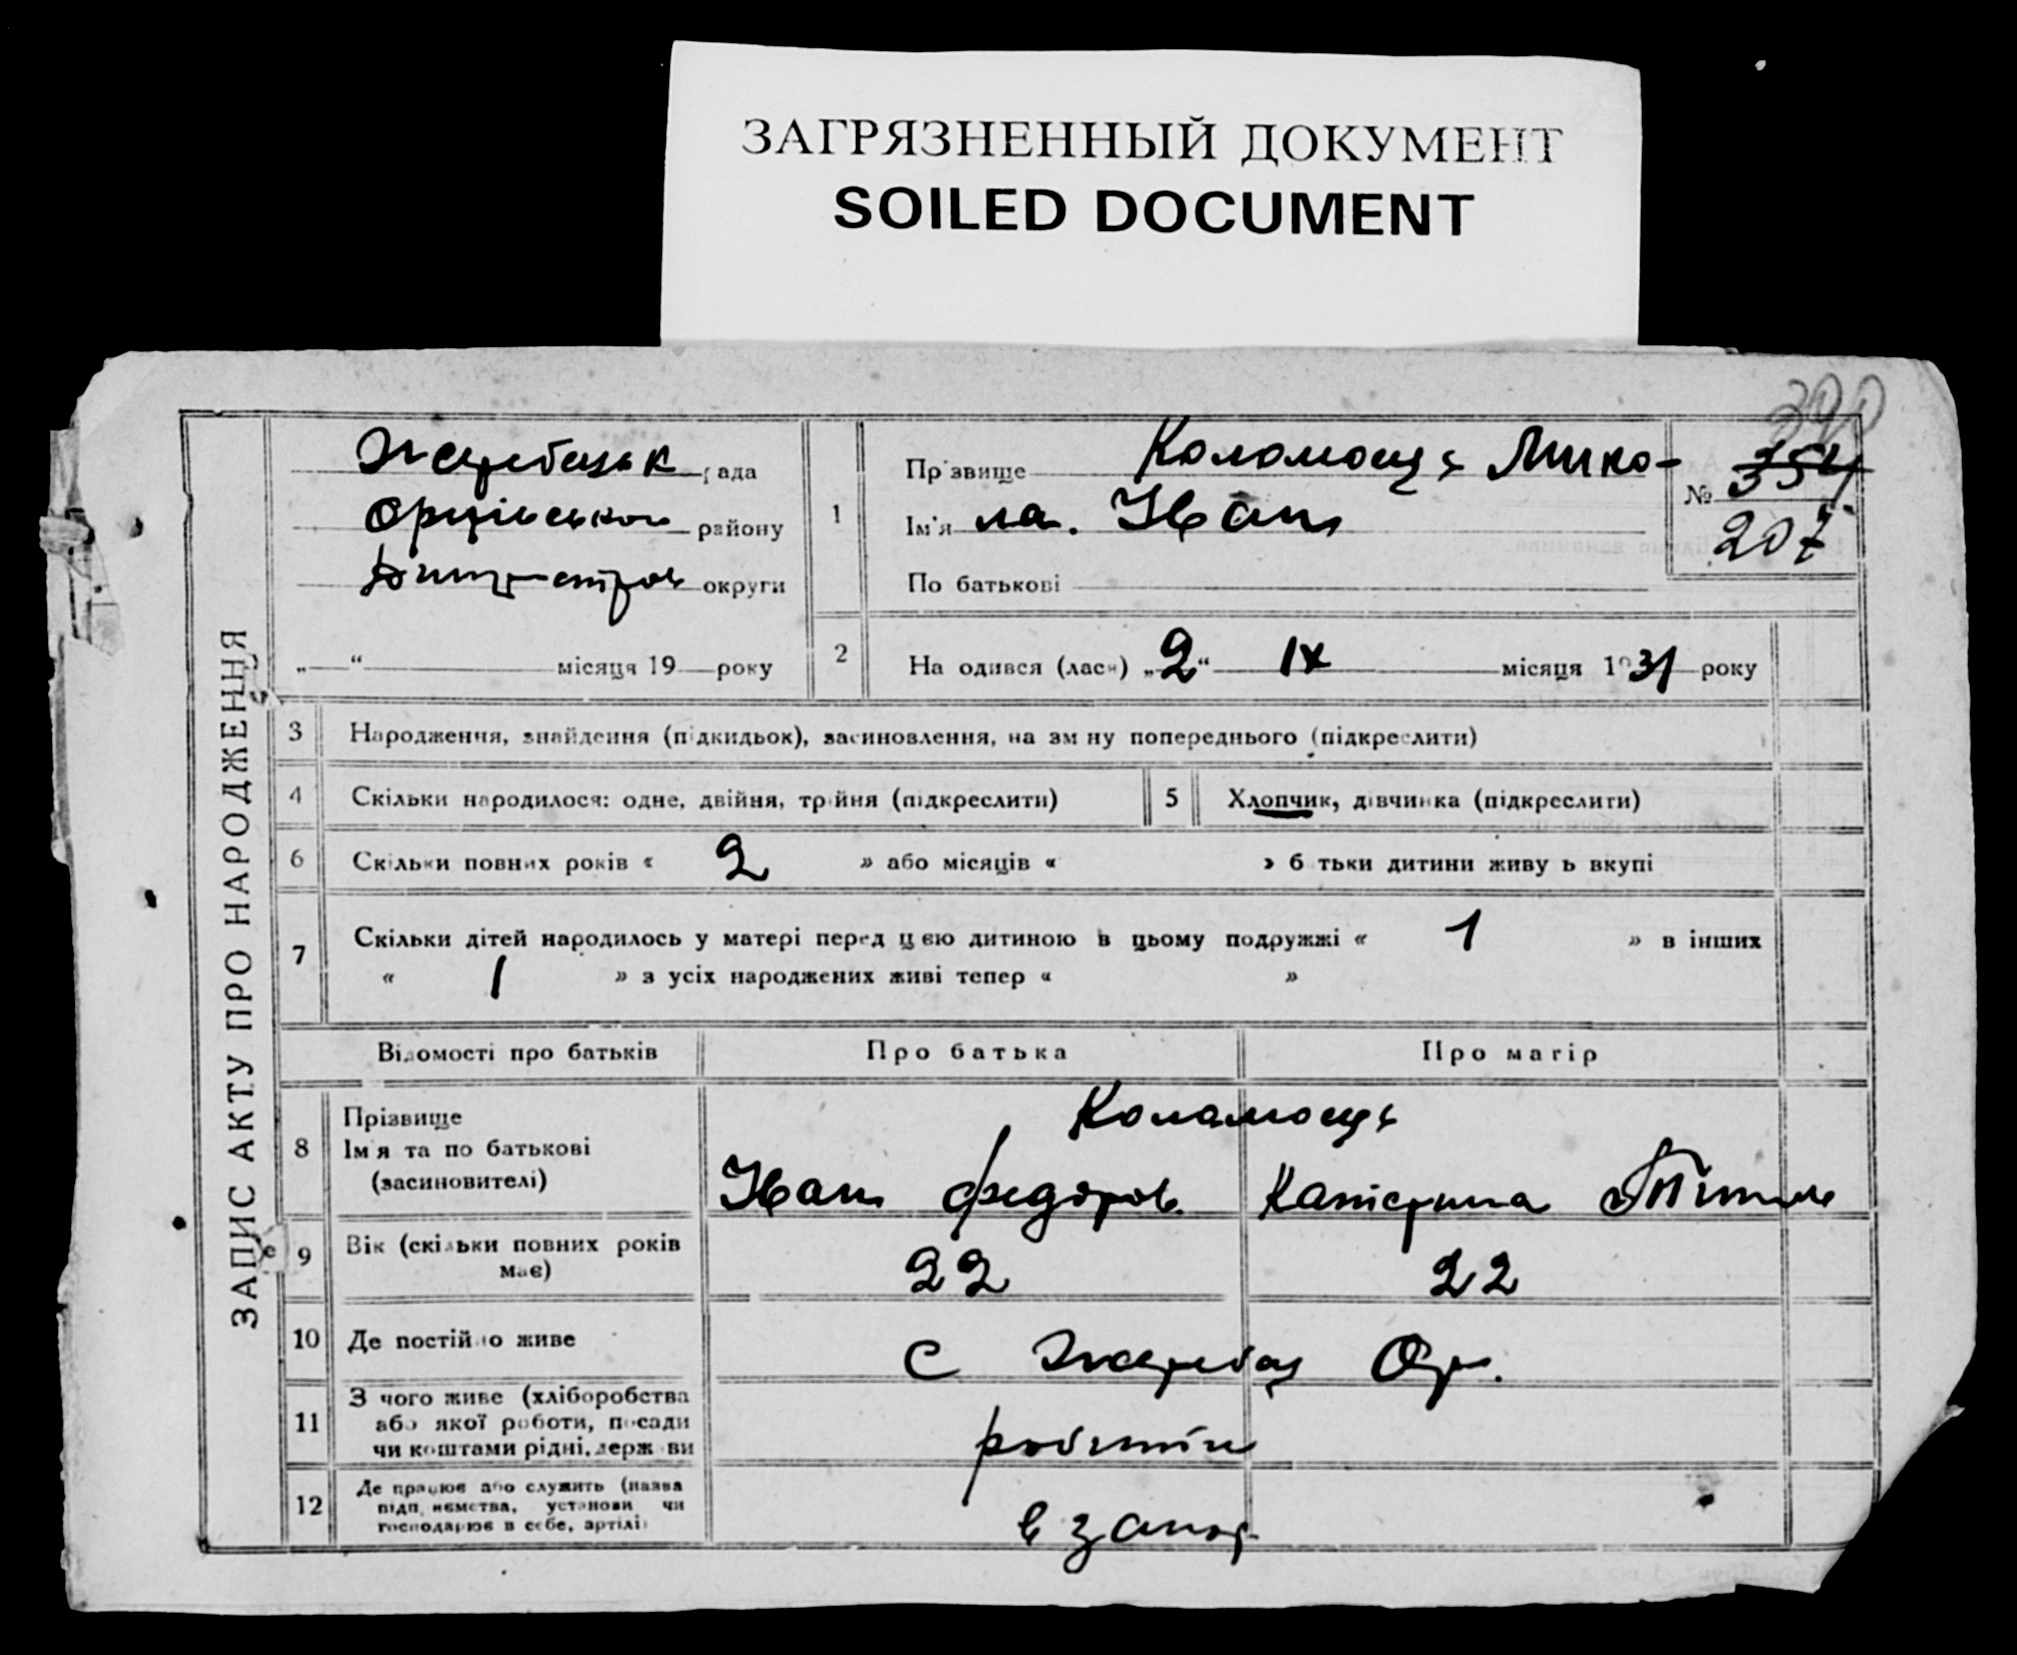 ЗАГРЯЗНЕННЫЙ ДОКУМЕНТ
SOILED DOCUMENT
ЗАПИС АКТУ ПРО НАРОДЖЕННЯ
рада
району
округи
„ “ місяця 19 року
1
Прізвище Коломоєць Мико-
Ім'я ла. Іван
По батькові
№ 354
207
2
На одився (лась) „2“ IX місяця 1931 року
3 Народження, знайдення (підкидьок), засиновлення, на зміну попереднього (підкреслити)
4 Скільки народилося: одне, двійня, трійня (підкреслити)
5 Хлопчик, дівчинка (підкреслити)
6 Скільки повних років « 2 » або місяців « » б тьки дитини живу ь вкупі
7 Скільки дітей народилось у матері перед цією дитиною в цьому подружжі « 1 » в інших
« 1 » з усіх народжених живі тепер « »
Відомості про батьків Про батька Про матір
8 Прізвище
Ім'я та по батькові
(засиновителі)
Коломоєць
Іван Федоров. Катерина
9 Вік (скільки повних років
має)
22 22
10 Де постійно живе
с Жеребец Ор.
11 З чого живе (хліборобства
або якої роботи, посади
чи коштами рідні, держави
робітн
12 Де працює або служить (назва
підприємства, установи чи
господарює в себе, артілі)
в запор